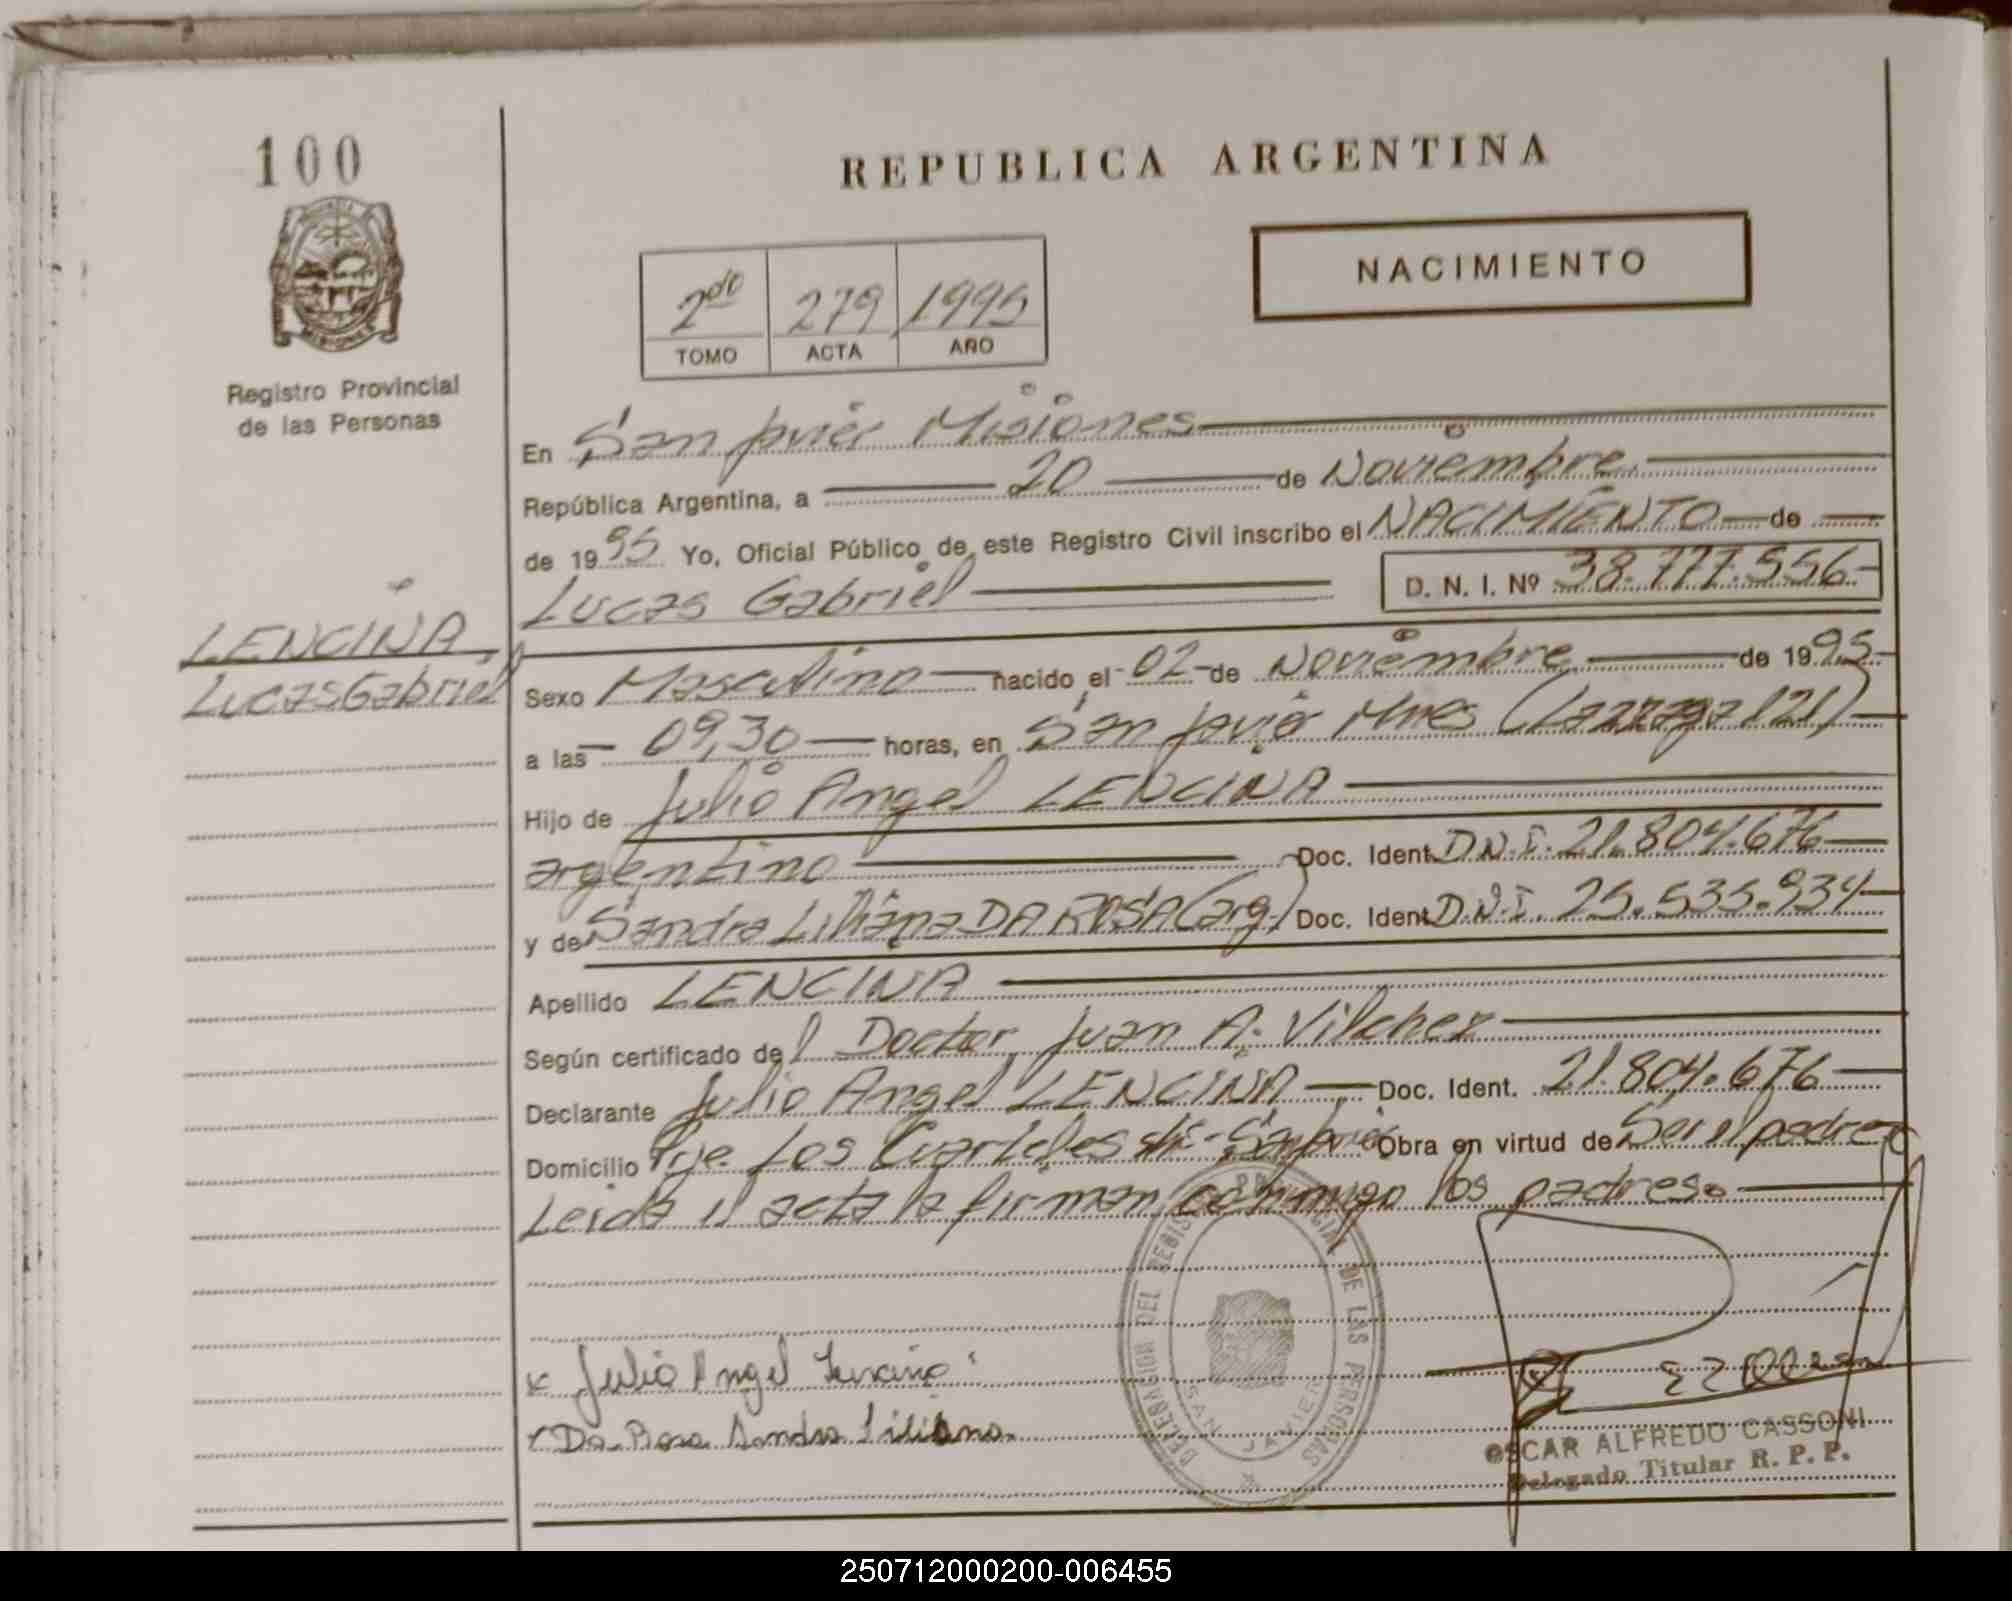 100
REPUBLICA ARGENTINA
NACIMIENTO
2do 279 1995
TOMO ACTA AÑO
Registro Provincial
de las Personas
En San Javier Misiones
República Argentina, a 20 de Noviembre
de 1995 Yo, Oficial Público de este Registro Civil inscribo el NACIMIENTO de
Lucas Gabriel D. N. I. Nº 38.777.556
LENCINA,
Lucas Gabriel
Sexo Masculino nacido el 02 de Noviembre de 1995
a las 09,30 horas, en San Javier Mnes (Lazzaga 121)
Hijo de Julio Angel LENCINA
argentino Doc. Ident. D.N.I. 21.804.676
y de Sandra Liliana DA ROSA (arg.) Doc. Ident. D.N.I. 25.535.934
Apellido LENCINA
Según certificado del Doctor Juan A. Vilchez
Declarante Julio Angel LENCINA Doc. Ident. 21.804.676
Domicilio Pje. Los Cuarteles Obra en virtud de Ser el padre
Leida el acta la firman conmigo los padres.
Julio Angel Lencina
Da Rosa Sandra Liliana.
DELEGACION DEL REGISTRO PROVINCIAL DE LAS PERSONAS
SAN JAVIER
OSCAR ALFREDO CASSONI
Delegado Titular R. P. P.
250712000200-006455